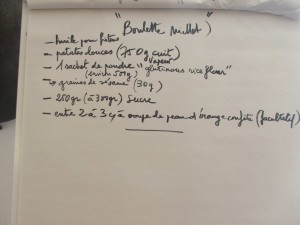 " Boulette Millot "
— huile pour friture
— patates douces (750g cuit)
vapeur
— 1 sachet de poudre "glutinous rice flour"
(environ 500g)
→ graines de sésame (30g)
— 250gr (à 300gr) sucre
— entre 2 à 3 c/à soupe de peau d'orange confite (facultatif)